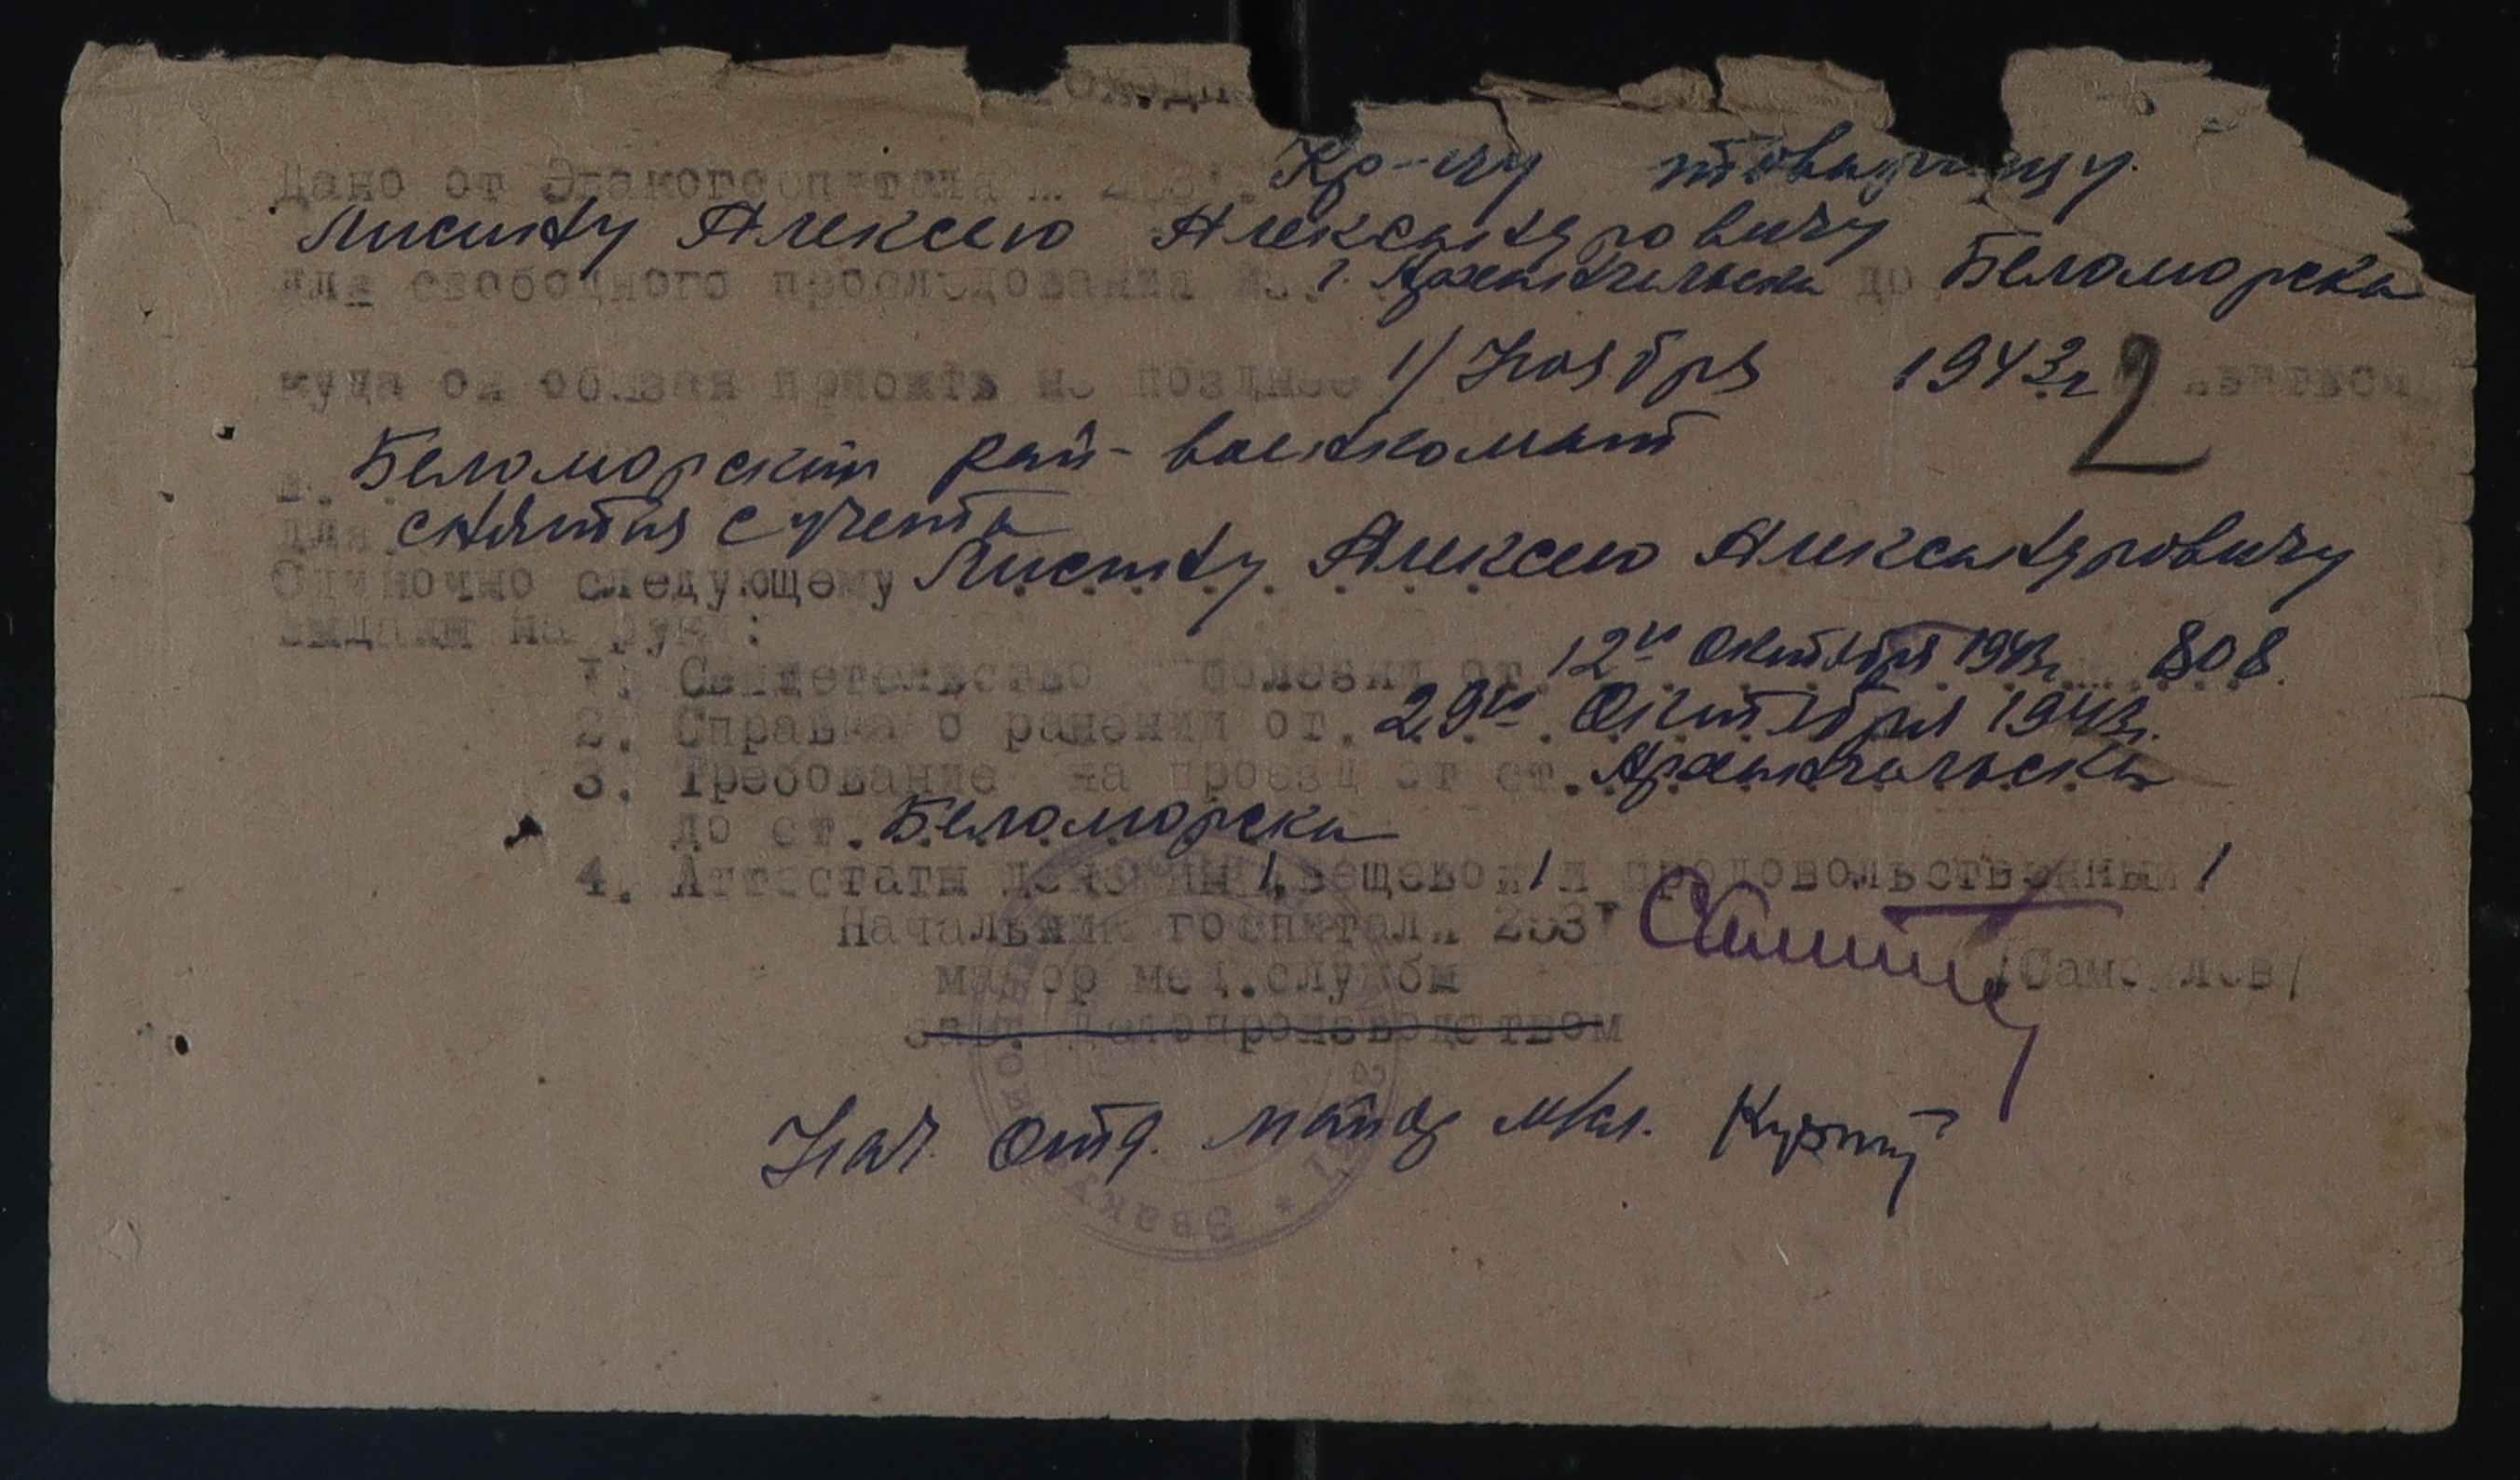 Дано от Эвакогоспиталя № 2531. Кр-цу товарищу.
Лисину Алексею Александровичу
для свободного проследования из. г. Архангельска до Беломорска
куда он обязан прибыть не позднее 1/ Ноября 1943г 2
в. Беломорский рай-военкомат
для. снятия с учета
Одиночно следующему Лисину Алексею Александровичу
выданы на руки:
1. Свидетельство о болезни от. 12го Октября 1943г. № 808.
2. Справка о ранении от. 29го Октября 1943г.
3. Требование на проезд от ст. Архангельска
до ст. Беломорска
4. Аттестаты денежный 1, вещевой 1 и продовольственный 1
Начальник госпиталя 2531
майор мед.службы /Самойлов/
зав. делопроизводством
Нач. Отд. м/сл.